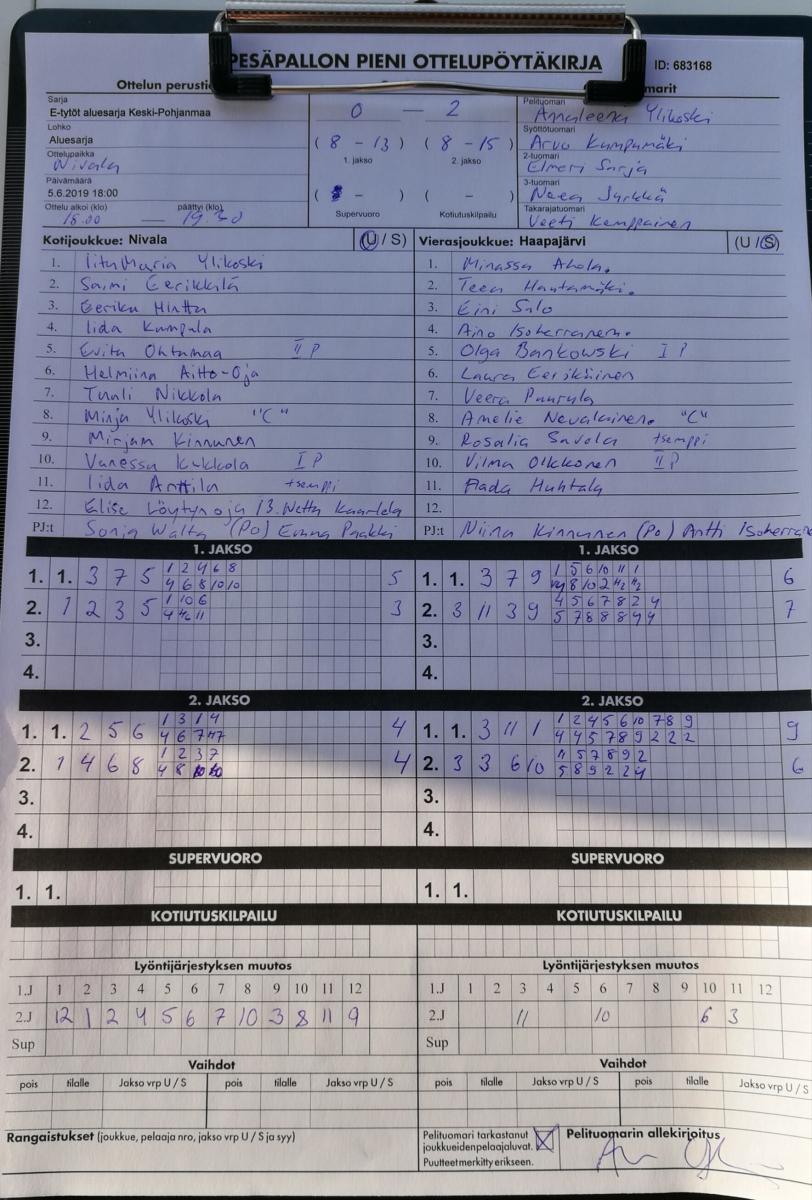 PESÄPALLON PIENI OTTELUPÖYTÄKIRJA
ID: 683168
Ottelun perustie
marit
Sarja
E-tytöt aluesarja Keski-Pohjanmaa
Lohko
Aluesarja
Ottelupaikka
Nivala
Päivämäärä
5.6.2019 18:00
Ottelu alkoi (klo) päättyi (klo)
18.00 — 19.30
0 — 2
( 8 - 13 ) ( 8 - 15 )
1. jakso 2. jakso
( - ) ( - )
Supervuoro Kotiutuskilpailu
Pelituomari
Annaleena Ylikoski
Syöttötuomari
Arvo Kumpumäki
2-tuomari
Elmeri Sarja
3-tuomari
Neea Jyrkkä
Takarajatuomari
Veeti Kemppainen
Kotijoukkue: Nivala (U / S)
1. IituMaria Ylikoski
2. Saimi Eerikkilä
3. Eerika Hintta
4. Iida Kumpula
5. Evita Ohtamaa II P
6. Helmiina Aitto-Oja
7. Tuuli Nikkola
8. Minja Ylikoski "C"
9. Mirjam Kinnunen
10. Vanessa Kukkola I P
11. Iida Anttila tsemppi
12. Elise Löytynoja 13. Netta Kaarlela
PJ:t Sonja Waltz (Po) Emma Paakki
Vierasjoukkue: Haapajärvi (U / S)
1. Minassa Ahola.
2. Teea Hautamäki.
3. Eini Salo
4. Aino Isoherranen.
5. Olga Bankowski I P
6. Laura Eerikäinen
7. Veera Paurula
8. Amelie Nevalainen. "C"
9. Rosalia Savola tsemppi
10. Vilma Olkkonen II P
11. Aada Huhtala
12.
PJ:t Niina Kinnunen (Po) Antti Isoherrane
1. JAKSO
1. 1. 3 7 5 1 2 4 6 8 5
4 6 8 10 10
2. 1 2 3 5 1 10 6 3
3.
4.
1. JAKSO
1. 1. 3 7 9 1 5 6 10 11 1 6
2. 3 11 3 9 4 5 6 7 8 2 4 7
5 7 8 8 8 4 4
3.
4.
2. JAKSO
1. 1. 2 5 6 1 3 1 4 4
2. 1 4 6 8 1 2 3 7 4
3.
4.
2. JAKSO
1. 1. 3 11 1 1 2 4 5 6 10 7 8 9 9
4 4 5 7 8 9 2 2 2
2. 3 3 6 10 11 5 7 8 9 2 6
5 8 9 2 2 4
3.
4.
SUPERVUORO
1. 1.
SUPERVUORO
1. 1.
KOTIUTUSKILPAILU
KOTIUTUSKILPAILU
Lyöntijärjestyksen muutos
1.J 1 2 3 4 5 6 7 8 9 10 11 12
2.J 12 1 2 4 5 6 7 10 3 8 11 9
Sup
Lyöntijärjestyksen muutos
1.J 1 2 3 4 5 6 7 8 9 10 11 12
2.J 11 10 6 3
Sup
Vaihdot
pois tilalle Jakso vrp U / S pois tilalle Jakso vrp U / S
Vaihdot
pois tilalle Jakso vrp U / S pois tilalle Jakso vrp U / S
Rangaistukset (joukkue, pelaaja nro, jakso vrp U / S ja syy)
Pelituomari tarkastanut
joukkueidenpelaajaluvat.
Puutteet merkitty erikseen.
Pelituomarin allekirjoitus